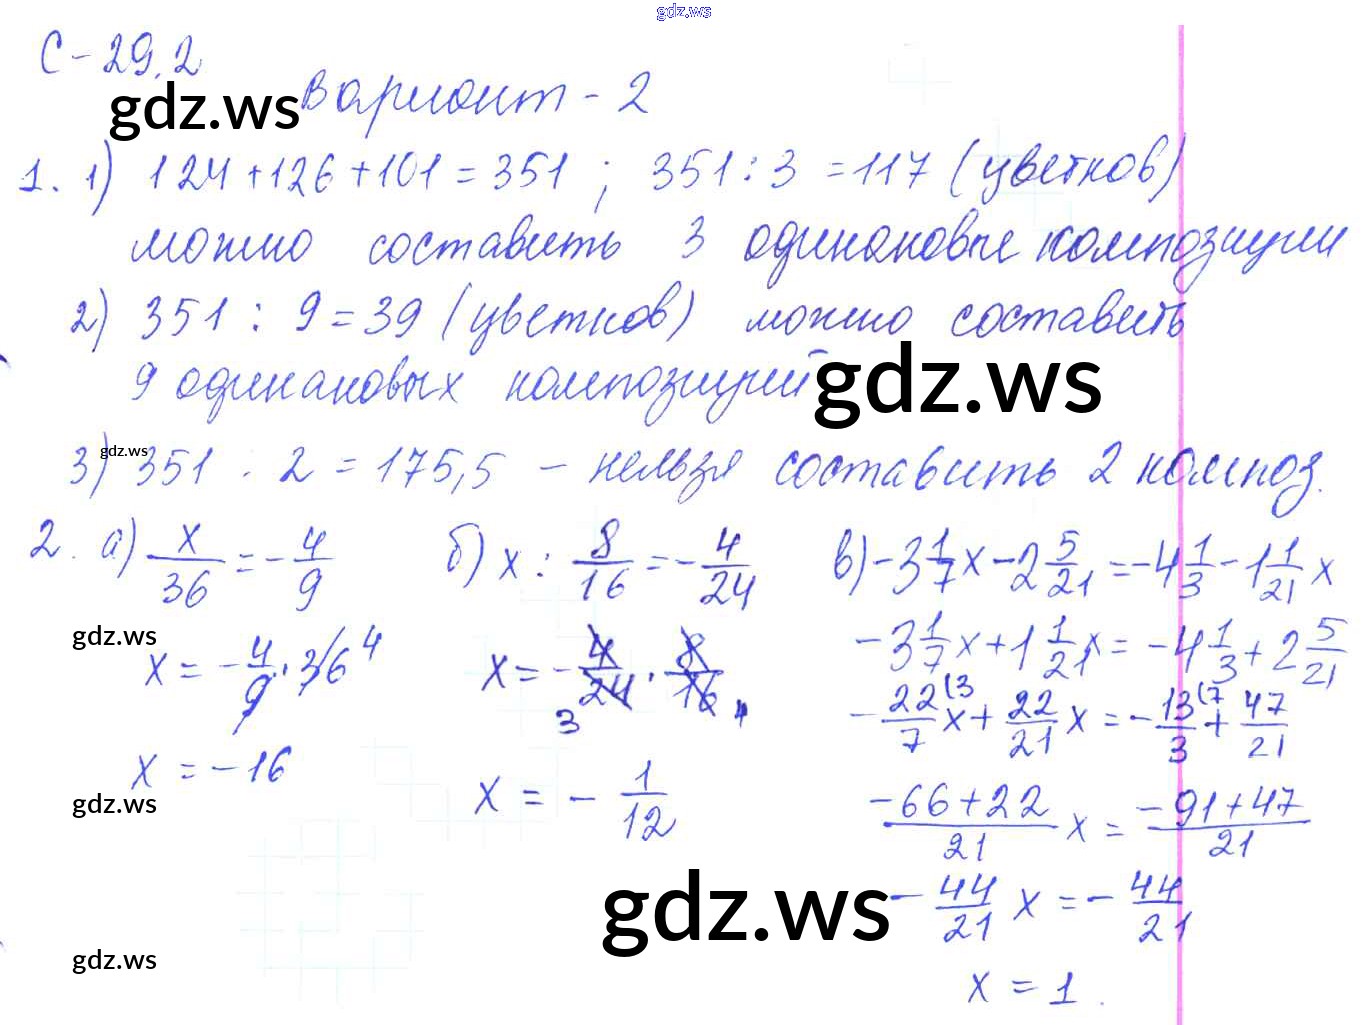 gdz.ws
С-29.2
gdz.ws вариант - 2
1. 1) 124+126+101=351 ; 351:3 =117 (цветков)
можно составить 3 одинаковые композиции
2) 351 : 9=39 (цветков) можно составить
9 одинаковых композиций gdz.ws
3) gdz.ws 351 : 2 = 175,5 – нельзя составить 2 композ.
2. а) x/36 = -4/9 б) x : 8/16 = -4/24 в) -3 1/7 x - 2 5/21 = -4 1/3 - 1 1/21 x
gdz.ws
x = -4/9 · 36 4 x = -4/24 · 8/16 3 4 -3 1/7 x + 1 1/21 x = -4 1/3 + 2 5/21
-22/7 (3 x + 22/21 x = -13/3 (7 + 47/21
x = -16 x = - 1/12 (-66+22)/21 x = (-91+47)/21
gdz.ws
gdz.ws - 44/21 x = - 44/21
gdz.ws x = 1.